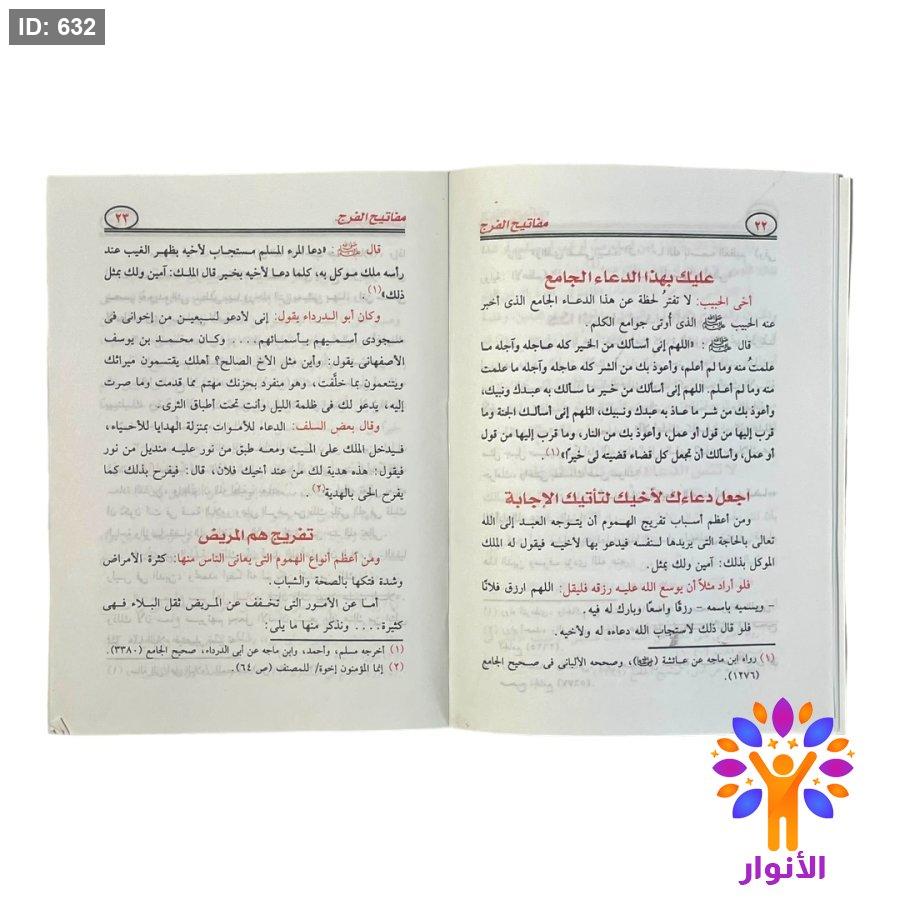 ID: 632
٢٢
مفاتيح الفرج
عليك بهذا الدعاء الجامع
أخى الحبيب: لا تفترُ لحظة عن هذا الدعاء الجامع الذى أخبر
عنه الحبيب ﷺ الذى أوتى جوامع الكلم.
قال ﷺ: «اللهم إنى أسألك من الخير كله عاجله وآجله ما
علمتُ منه وما لم أعلم، وأعوذ بك من الشر كله عاجله وآجله ما علمت
منه وما لم أعلم. اللهم إنى أسألك من خير ما سألك به عبدك ونبيك،
وأعوذ بك من شر ما عاذ به عبدك ونبيك، اللهم إنى أسألك الجنة وما
قرب إليها من قول أو عمل، وأعوذ بك من النار، وما قرب إليها من قول
أو عمل، وأسألك أن تجعل كل قضاء قضيته لى خيرًا»(١).
اجعل دعاءك لأخيك لتأتيك الإجابة
ومن أعظم أسباب تفريج الهموم أن يتوجه العبد إلى الله
تعالى بالحاجة التى يريدها لنفسه فيدعو بها لأخيه فيقول له الملك
الموكل بذلك: آمين ولك بمثل.
فلو أراد مثلاً أن يوسع الله عليه رزقه فليقل: اللهم ارزق فلانًا
- ويسميه باسمه - رزقًا واسعًا وبارك له فيه.
فلو قال ذلك لاستجاب الله دعاءه له ولأخيه.
(١) رواه ابن ماجه عن عائشة (رضي الله عنها)، وصححه الألبانى فى صحيح الجامع
(١٢٧٦).
مفاتيح الفرج
٢٣
قال ﷺ: «دعا المرء المسلم مستجاب لأخيه بظهر الغيب عند
رأسه ملك موكل به، كلما دعا لأخيه بخير قال الملك: آمين ولك بمثل
ذلك»(١).
وكان أبو الدرداء يقول: إنى لأدعو لسبعين من إخوانى فى
سجودى أسميهم بأسمائهم.... وكان محمد بن يوسف
الأصفهانى يقول: وأين مثل الأخ الصالح؟ أهلك يقتسمون ميراثك
ويتنعمون بما خلَّفت، وهو منفرد بحزنك مهتم بما قدمت وما صرت
إليه، يدعو لك فى ظلمة الليل وأنت تحت أطباق الثرى.
وقال بعض السلف: الدعاء للأموات بمنزلة الهدايا للأحياء،
فيدخل الملك على الميت ومعه طبق من نور عليه منديل من نور
فيقول: هذه هدية لك من عند أخيك فلان، قال: فيفرح بذلك كما
يفرح الحى بالهدية(٢).
تفريج هم المريض
ومن أعظم أنواع الهموم التى يعانى الناس منها: كثرة الأمراض
وشدة فتكها بالصحة والشباب.
أما عن الأمور التى تخفف عن المريض ثقل البلاء فهى
كثيرة.... ونذكر منها ما يلى:
(١) أخرجه مسلم، وأحمد، وابن ماجه عن أبى الدرداء، صحيح الجامع (٣٣٨٠).
(٢) إنما المؤمنون إخوة/ للمصنف (ص ٦٤).
الأنوار